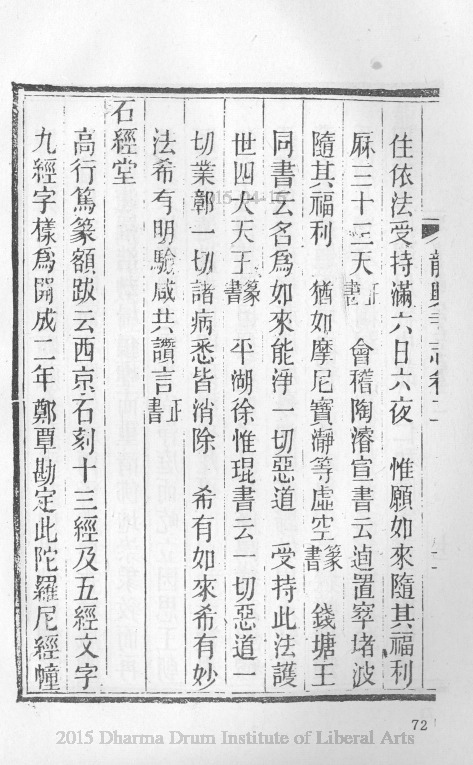 龍興寺志卷二
住依法受持滿六日六夜 惟願如來隨其福利
厤三十三天正書 會稽陶濬宣書云逈置窣堵波
隨其福利 猶如摩尼寶瀞等虛空篆書 錢塘王
同書云名爲如來能淨一切惡道 受持此法護
世四大天王篆書 平湖徐惟琨書云一切惡道一
切業鄣一切諸病悉皆消除 希有如來希有妙
法希有明驗咸共讚言正書
石經堂
高行篤篆額跋云西京石刻十三經及五經文字
九經字樣爲開成二年鄭覃勘定此陀羅尼經幢
72
2015 Dharma Drum Institute of Liberal Arts